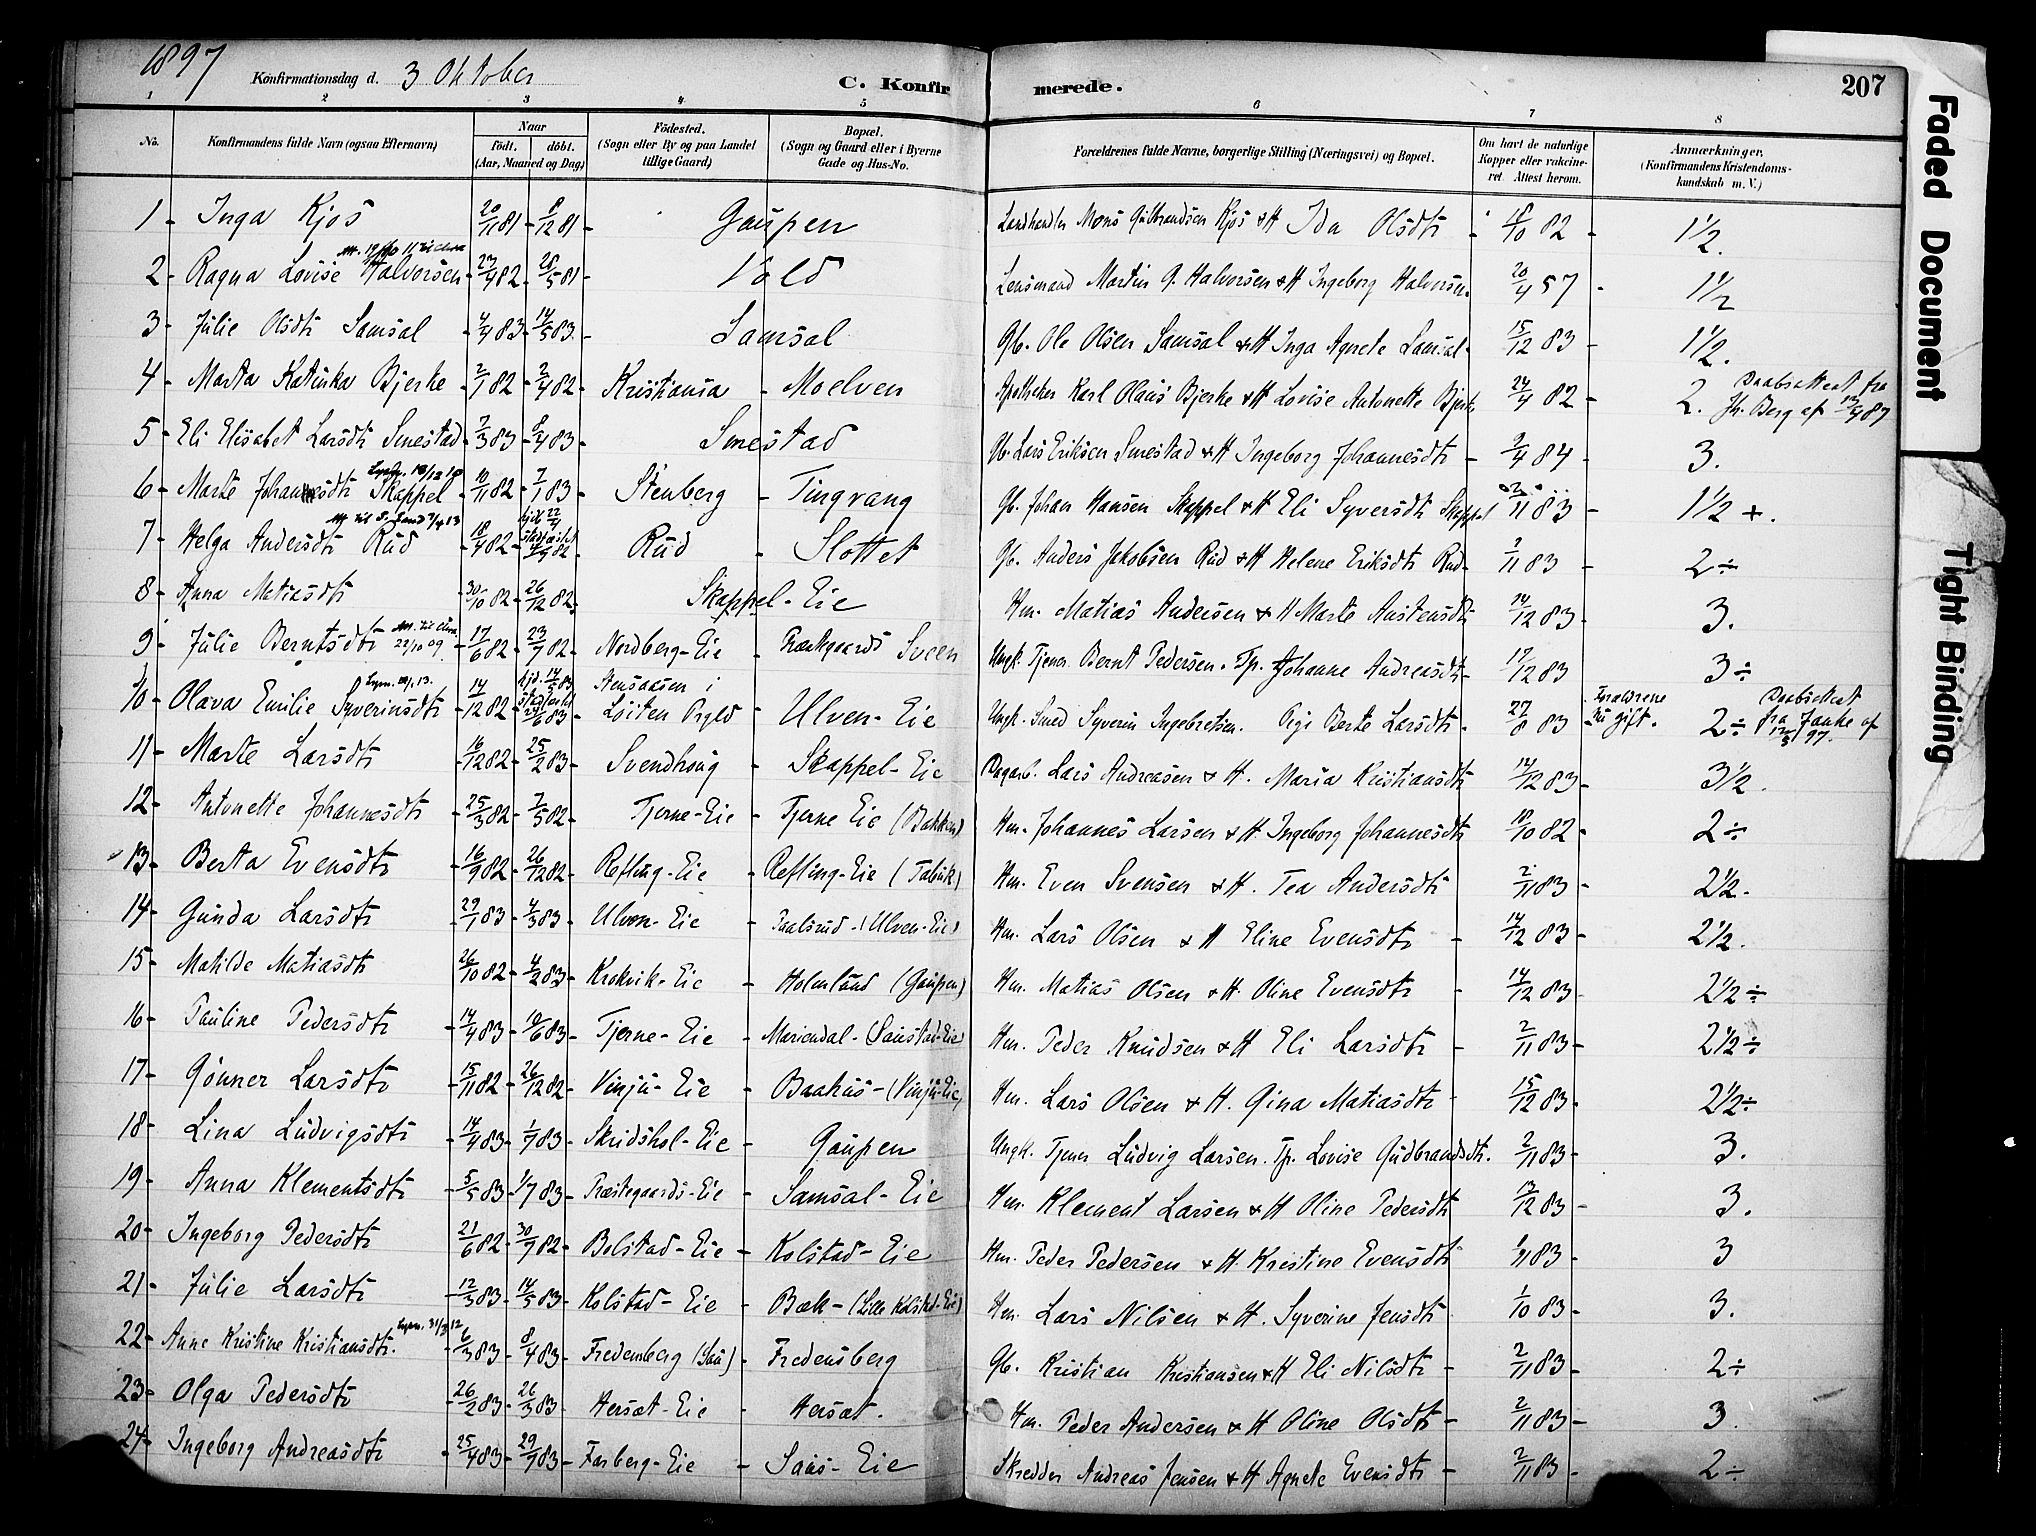 1897 Konfirmationsdag d. 3 Oktober C. Konfirmerede. 207
1 2 3 4 5 6 7 8
No. Konfirmandens fulde Navn (ogsaa Efternavn) Naar født. døbt. (Aar, Maaned og Dag) Fødested. (Sogn eller By og paa Landet tillige Gaard) Bopæl. (Sogn og Gaard eller i Byerne Gade og Hus-No. Forældrenes fulde Navne, borgerlige Stilling (Næringsvei) og Bopæl. Om havt de naturlige Kopper eller vakcineret. Attest herom. Anmærkninger. (Konfirmandens Kristendomskundskab m. V.)
1 - Inga Kjos 20/11 81 - 8/12 81 - Gaupen Landhandler Mons Gulbrandsen Kjos & H Ida Olsdtr - 18/10 82 - 1½.
2 - Ragna Lovise Halvorsen 23/4 82 - 28/5 81 - Vold Lensmand Martin G. Halvorsen & H Ingeborg Halvorsen 20/4 57 - 1½
3 - Julie Olsdtr Samsal 4/4 83 - 14/5 83 - Samsal Gb. Ole Olsen Samsal & H Inga Agnete Samsal - 15/12 83 - 1½.
4 - Marta Katinka Bjerke - 2/1 82 - 2/4 82 - Kristiania - Moelven Apotheker Karl Olaus Bjerke & H Lovise Antonette Bjerke 24/4 82 - 2. Daabsattest fra Jh. Berg af 12/4 87
5 - Eli Elisabet Larsdtr Smestad - 7/3 83 - 8/4 83 - Smestad Gb. Lars Eriksen Smestad & H Ingeborg Johannesdtr - 9/4 84 - 3.
6 - Marte Johannesdtr Skappel - 10/11 82 - 7/1 83 - Stenberg - Tingvang Gb. Johan Hansen Skappel & H Eli Syversdtr Skappel 11 83 - 1½ +.
7 - Helga Andersdtr Rud - 18/4 82 - Rud - Slottet Gb. Anders Jakobsen Rud & H Helene Eriksdtr Rud - 2/11 83 - 2÷
8 - Anna Matiasdtr - 30/10 82 - 26/12 82 - Skappel - Eie Hm. Matias Andersen & H Marte Austensdtr 14/12 83 - 3.
9 - Julie Berntsdtr 22/10 09 - 17/6 82 - 23/7 82 - Nordberg - Eie - Sveen Ungk. Tjener Bernt Pedersen. Tp. Johanne Andreasdtr - 17/12 83 3÷
10 - Olava Emilie Syverinsdtr - 14/12 82 - Stensaasen i Løiten Prgld - Ulven - Eie Ungk. Smed Syverin Ingebretsen. Pige Berte Larsdtr - 27/8 83 Forældrene nu gift. 2÷ Daabsattest fra Fauke af 12/5 97.
11 - Marte Larsdtr - 16/12 82 - 25/2 83 - Svendhoug - Skappel - Eie Dagarb. Lars Andreasen & H. Maria Kristiansdtr 14/12 83 - 3½.
12 - Antonette Johannesdtr - 25/3 82 - 7/5 82 - Tjerne - Eie - Tjerne Eie (Bakken) Hm. Johannes Larsen & H. Ingeborg Johannesdtr 18/10 82 - 2÷
13 - Berta Evensdtr - 16/9 82 - 26/12 82 - Refling - Eie - Refling - Eie (Fabrik) Hm. Even Svensen & H. Tea Andersdtr 2/11 83 - 2½.
14 - Gunda Larsdtr - 29/1 83 - 4/3 83 - Ulven - Eie - Paalsrud - (Ulven - Eie) Hm. Lars Olsen & H Eline Evensdtr - 14/12 83 - 2½.
15 - Matilde Matiasdtr 26/10 82 - 4/2 83 - Krokvik - Eie - Holmlund (Gaupen) Hm. Matias Olsen & H. Oline Evensdtr - 14/12 83 - 2½÷
16 - Pauline Pedersdtr - 14/4 83 - 10/6 83 - Tjerne - Eie - Mariendal - (Saustad - Eie) Hm. Peder Knudsen & H Eli Larsdtr - 2/11 83 - 2½÷
17 - Gunner Larsdtr - 15/11 82 - 26/12 82 - Vinju - Eie - Baakus - (Vinju - Eie) Hm. Lars Olsen & H. Gina Matiasdtr 15/12 83 - 2½÷
18 - Lina Ludvigsdtr - 14/4 83 - 1/7 83 - Skridshol - Eie - Gaupen Ungk. Tjener Ludvig Larsen. Tp. Lovise Gudbrandsdtr. 2/11 83 - 3.
19 - Anna Klementsdtr - 5/5 83 - 1/7 83 - Præstegaards - Eie - Samsal - Eie Hm. Klement Larsen & H Oline Pedersdtr 13/12 83 - 3.
20 - Ingeborg Pedersdtr 21/6 82 - 30/7 82 - Bolstad - Eie - Kolstad - Eie Hm. Peder Pedersen & H. Kristine Evensdtr 1/11 83 - 3
21 - Julie Larsdtr - 12/3 83 - 14/5 83 - Kolstad - Eie - Bæk - (Lille Kolstad - Eie) Hm. Lars Nilsen & H. Syverine Jensdtr 1/10 83 - 3.
22 - Anne Kristine Kristiansdtr. - 6/3 83 - 8/4 83 - Fredensberg (Sau) - Fredensberg Gb. Kristian Kristiansen & H Eli Nilsdtr - 2/11 83 - 2÷
23 - Olga Pedersdtr - 26/2 83 - 26/3 83 - Hersæt - Eie - Hersæt. Hm. Peder Andersen & H Oline Olsdtr - 2/11 83 - 3.
24 - Ingeborg Andreasdtr - 25/4 83 - 29/7 83 - Farberg - Eie - Saus - Eie Skredder Andreas Jensen & H Agnete Evensdtr - 2/11 83 - 2÷
Faded Document
Tight Binding